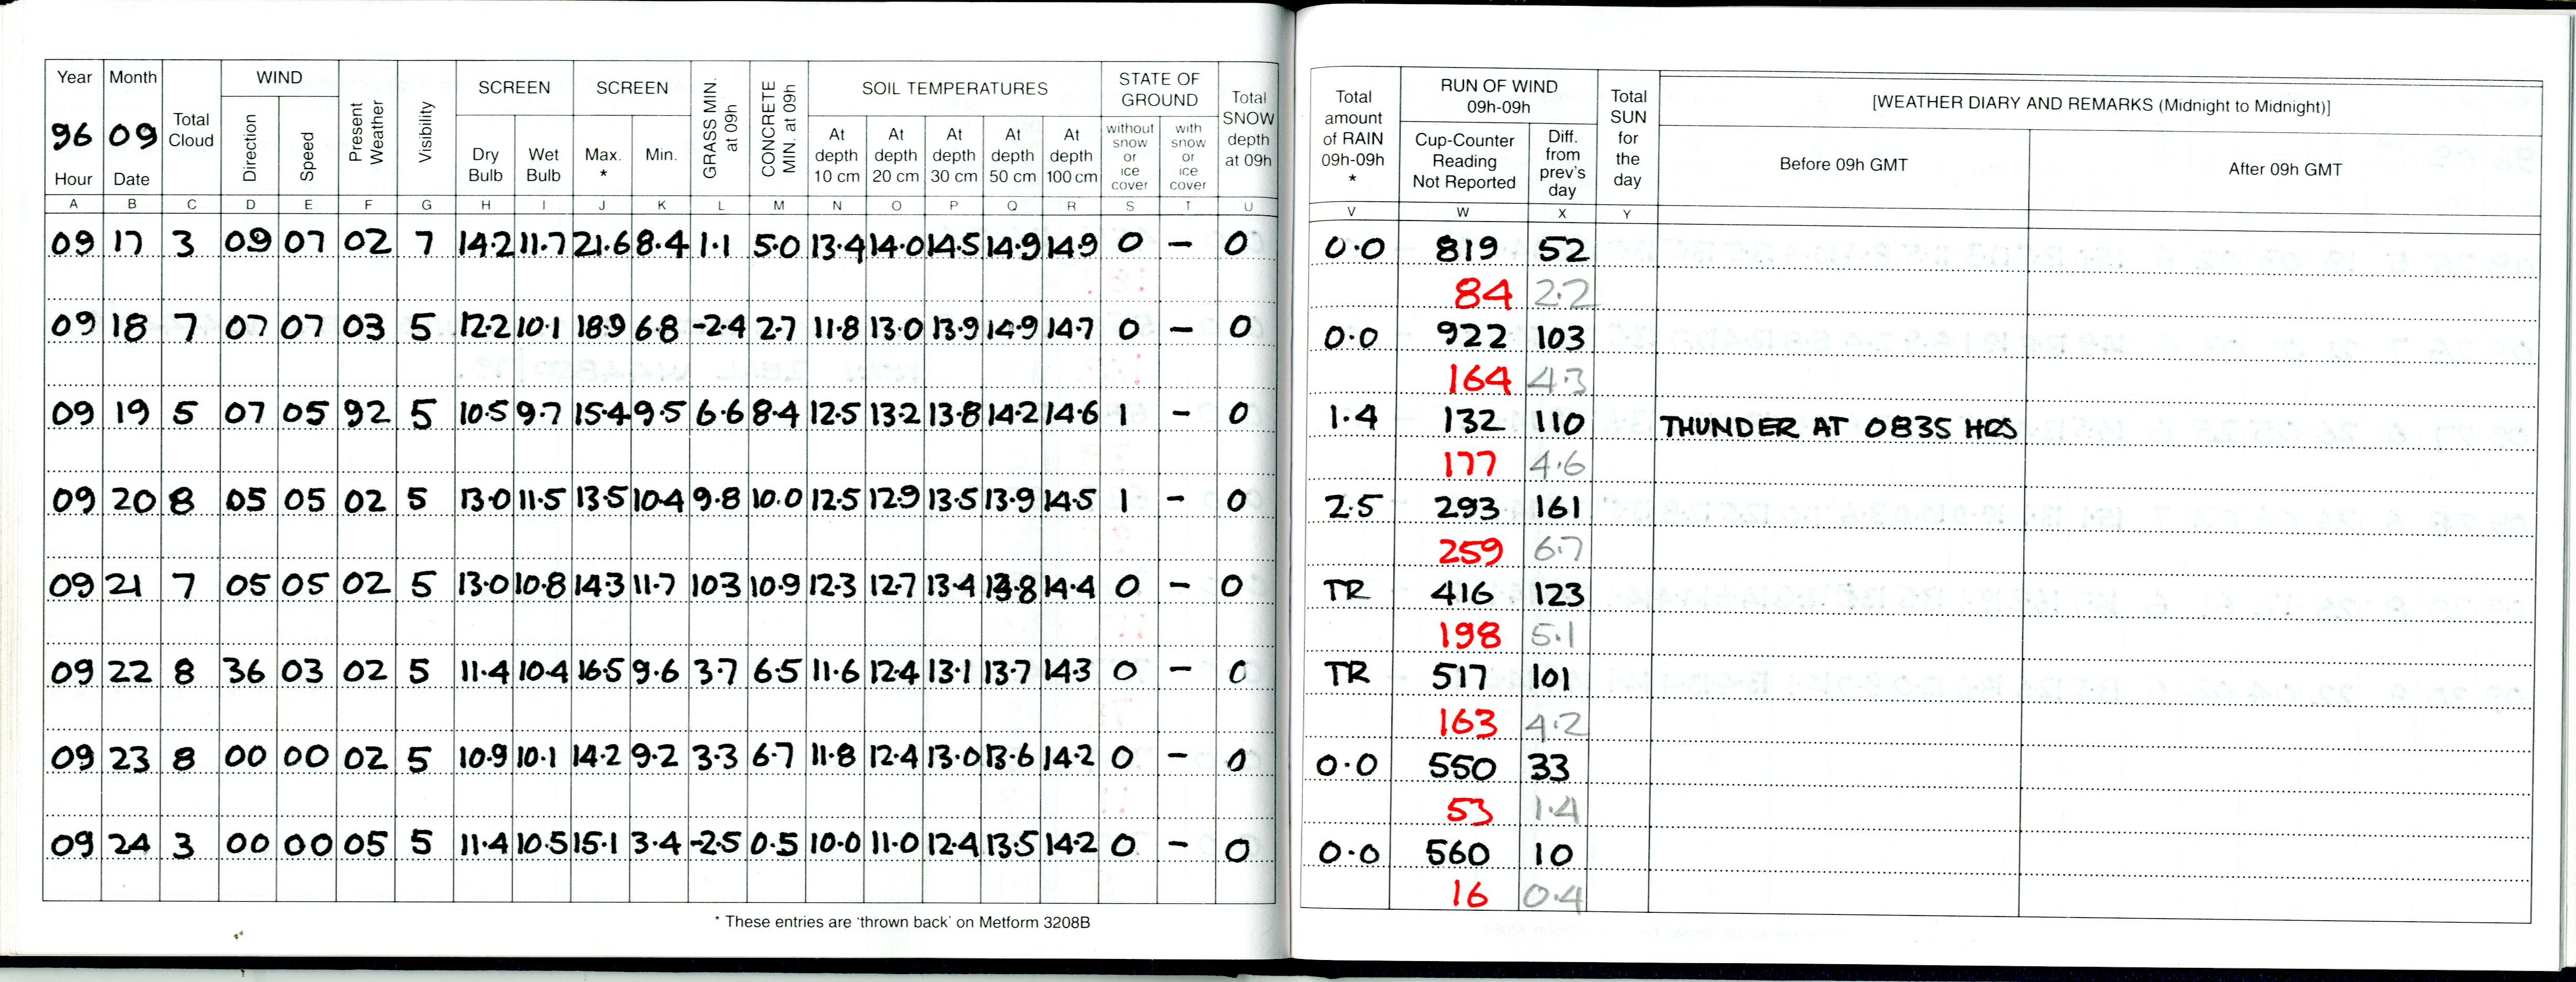 Year Month Total Cloud WIND Present Weather Visibility SCREEN SCREEN GRASS MIN. at 09h CONCRETE MIN. at 09h SOIL TEMPERATURES STATE OF GROUND Total SNOW depth at 09h
96 09 Direction Speed Dry Bulb Wet Bulb Max. * Min. At depth 10 cm At depth 20 cm At depth 30 cm At depth 50 cm At depth 100 cm without snow or ice cover with snow or ice cover
Hour Date
A B C D E F G H I J K L M N O P Q R S T U
09 17 3 09 07 02 7 14.2 11.7 21.6 8.4 1.1 5.0 13.4 14.0 14.5 14.9 14.9 0 – 0
09 18 7 07 07 03 5 12.2 10.1 18.9 6.8 -2.4 2.7 11.8 13.0 13.9 14.9 14.7 0 – 0
09 19 5 07 05 92 5 10.5 9.7 15.4 9.5 6.6 8.4 12.5 13.2 13.8 14.2 14.6 1 – 0
09 20 8 05 05 02 5 13.0 11.5 13.5 10.4 9.8 10.0 12.5 12.9 13.5 13.9 14.5 1 – 0
09 21 7 05 05 02 5 13.0 10.8 14.3 11.7 103 10.9 12.3 12.7 13.4 13.8 14.4 0 – 0
09 22 8 36 03 02 5 11.4 10.4 16.5 9.6 3.7 6.5 11.6 12.4 13.1 13.7 14.3 0 – 0
09 23 8 00 00 02 5 10.9 10.1 14.2 9.2 3.3 6.7 11.8 12.4 13.0 13.6 14.2 0 – 0
09 24 3 00 00 05 5 11.4 10.5 15.1 3.4 -2.5 0.5 10.0 11.0 12.4 13.5 14.2 0 – 0
* These entries are 'thrown back' on Metform 3208B
Total amount of RAIN 09h-09h * RUN OF WIND 09h-09h Total SUN for the day [WEATHER DIARY AND REMARKS (Midnight to Midnight)]
Cup-Counter Reading Not Reported Diff. from prev's day Before 09h GMT After 09h GMT
V W X Y
0.0 819 52
84 2.2
0.0 922 103
164 4.3
1.4 132 110 THUNDER AT 0835 HRS
177 4.6
2.5 293 161
259 6.7
TR 416 123
198 5.1
TR 517 101
163 4.2
0.0 550 33
53 1.4
0.0 560 10
16 0.4